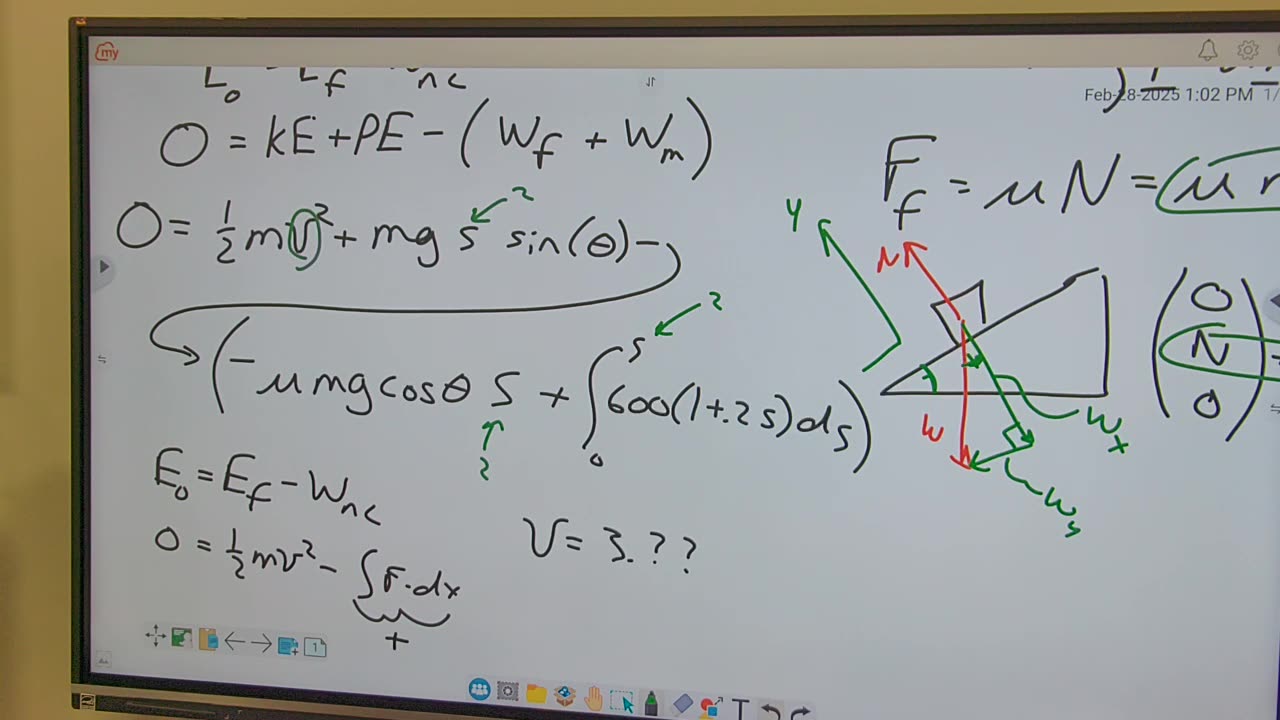 my
E₀ E_f nc
Feb-28-2025 1:02 PM 1/
0 = KE + PE - (W_f + W_m)
F_f = μN = μ
0 = ½mv² + mg s sin(θ) -
2
y
N
(-μmg cosθ S + ∫₀ˢ 600(1+.2s)ds)
2
2
W
W_x
W_y
(0
N
0)
E₀ = E_f - W_nc
0 = ½mv² - ∫F·dx
+
V = 3.??
1
T